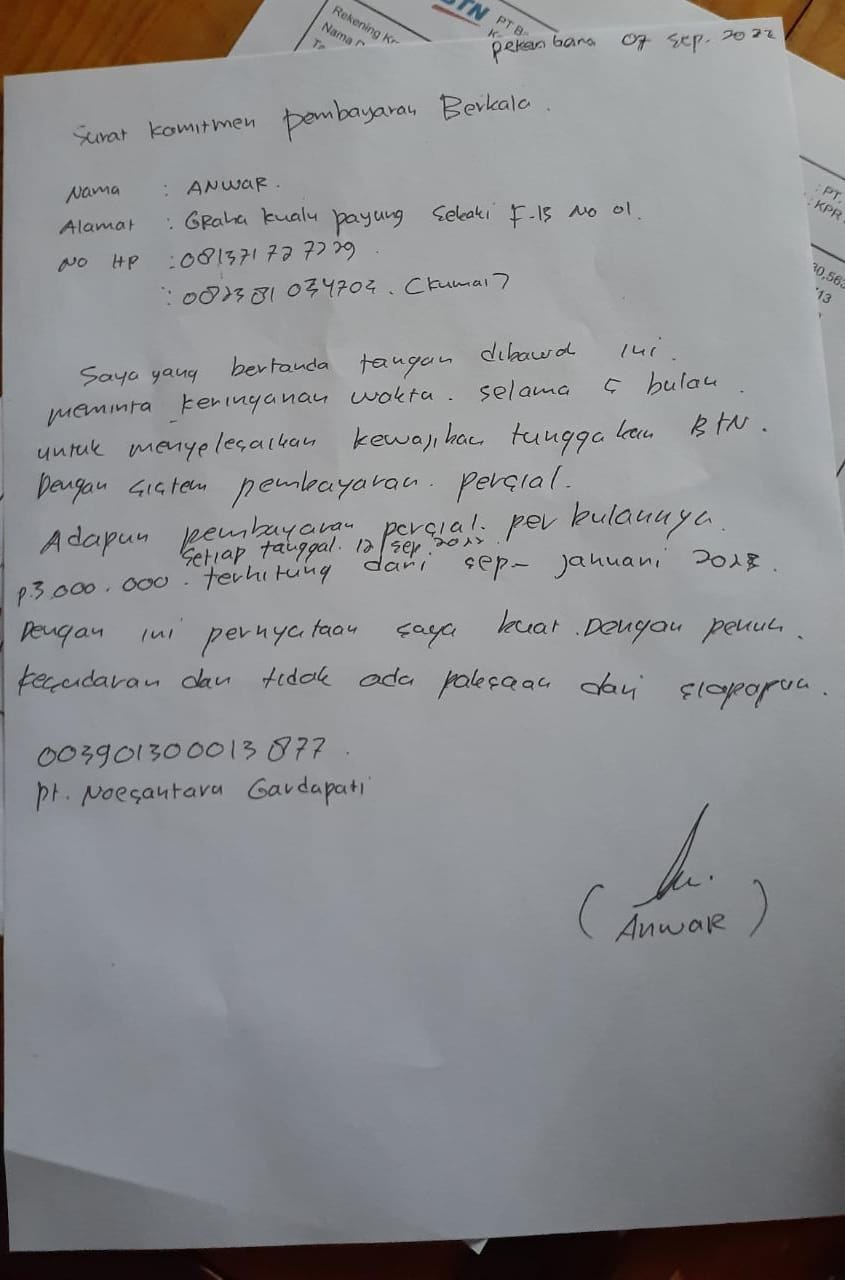 Rekening Kr
Nama
BTN
PT B
Pekanbaru 07 Sep. 2022
Surat Komitmen Pembayaran Berkala.
Nama : ANWAR.
Alamat : GRaha kualu payung sekaki F-13 No 01.
NO HP : 081371727229
: 082381034703. (kumai)
PT.
KPR
30,563
'13
Saya yang bertanda tangan dibawah ini.
meminta keringanan waktu. selama 5 bulan.
untuk menyelesaikan kewajiban tunggakan BtN.
Dengan sistem pembayaran. persial.
Adapun pembayaran persial. per bulannya
setiap tanggal. 12/sep.2022
p.3.000.000. terhitung dari sep- januari 2023.
Dengan ini pernyataan saya buat. Dengan penuh.
kesadaran dan tidak ada paksaan dari siapapun.
003901300013877.
pt. Noesantara Gardapati
(ANWAR)